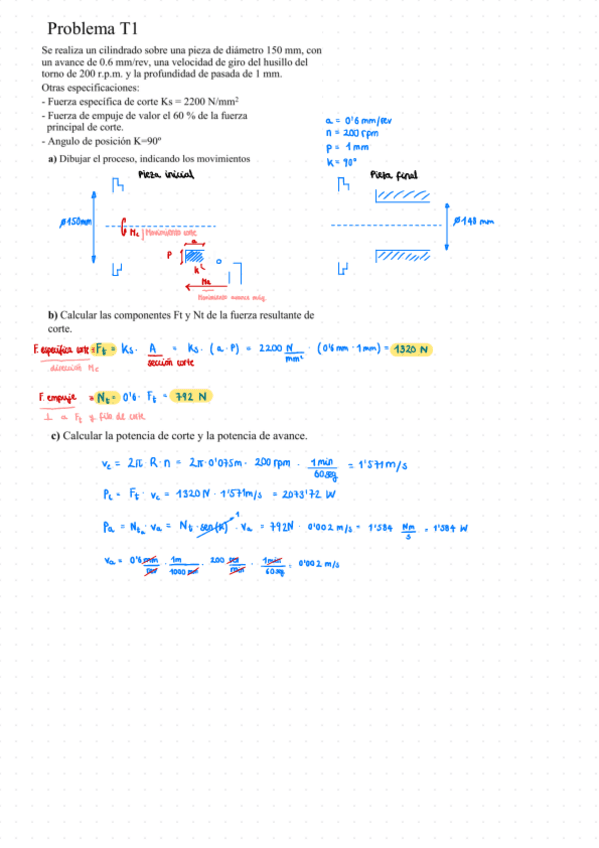 Problema T1
Se realiza un cilindrado sobre una pieza de diámetro 150 mm, con
un avance de 0.6 mm/rev, una velocidad de giro del husillo del
torno de 200 r.p.m. y la profundidad de pasada de 1 mm.
Otras especificaciones:
- Fuerza específica de corte Ks = 2200 N/mm²
- Fuerza de empuje de valor el 60 % de la fuerza
principal de corte.
- Angulo de posición K=90º
a = 0'6 mm/rev
n = 200 rpm
p = 1 mm
K = 90º
a) Dibujar el proceso, indicando los movimientos
Pieza inicial
Pieza final
Ø150mm
Mc
Movimiento corte
a
P
K
Ma
Movimiento avance máq.
Ø 148 mm
b) Calcular las componentes Ft y Nt de la fuerza resultante de
corte.
F. específica corte = Ft = Ks · A = Ks · (a · p) = 2200 N/mm² · (0'6 mm · 1 mm) = 1320 N
sección corte
dirección Mc
F. empuje = Nt = 0'6 · Ft = 792 N
⊥ a Ft y filo de corte
c) Calcular la potencia de corte y la potencia de avance.
vc = 2π R · n = 2π · 0'075m · 200 rpm · 1 min/60 seg = 1'571 m/s
Pc = Ft · vc = 1320 N · 1'571m/s = 2073'72 W
Pa = Nta · va = Nt · sen(K) 1 · va = 792N · 0'002 m/s = 1'584 Nm/s = 1'584 W
va = 0'6 mm/rev · 1m/1000 mm · 200 rev/min · 1min/60 seg = 0'002 m/s